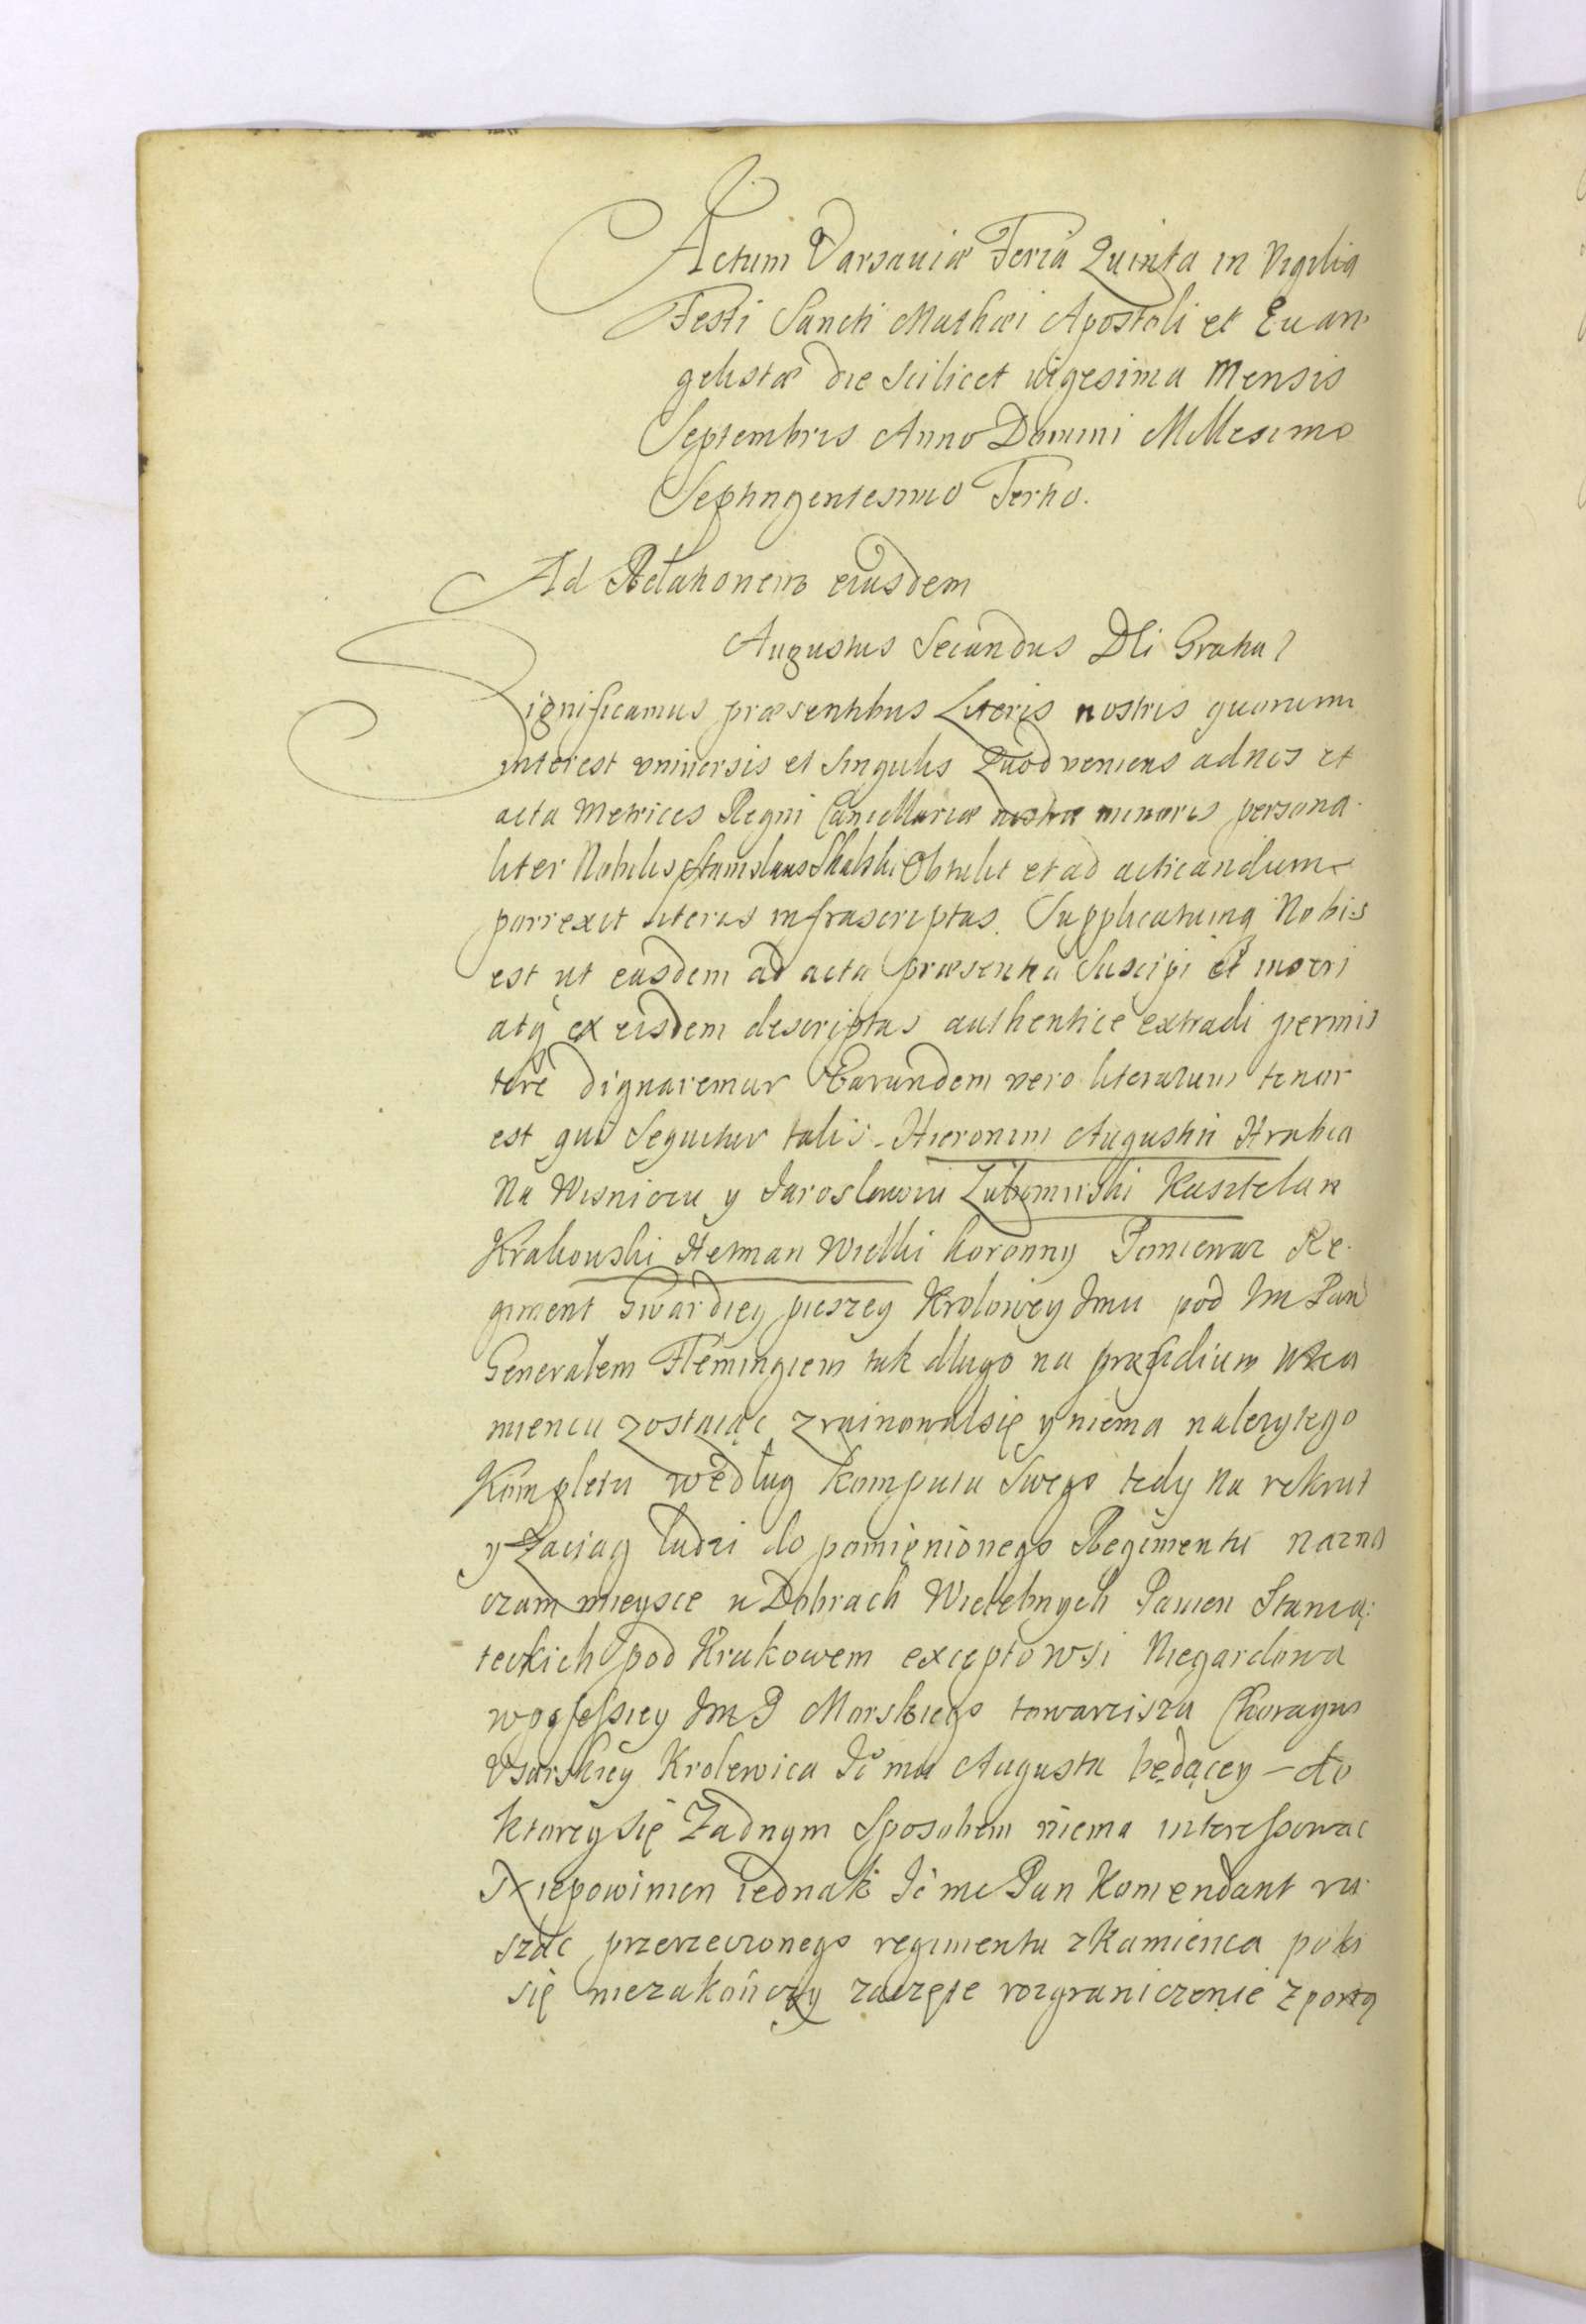 Actum Varsaviæ Feria Quinta in Vigilia
Festi Sancti Mathæi Apostoli et Euan
gelistæ die scilicet vigesima Mensis
Septembris Anno Domini Millesimo
Septingentesimo Tertio.
Ad Relationem eiusdem
Augustus Secundus Dei Gratia
Significamus præsentibus Literis nostris quorum
interest vniuersis et singulis Quod veniens ad nos et
acta Metrices Regni Cancellariæ nostræ minoris persona
liter Nobilis Stanislaus Skalski Obtulit et ad acticandum
porrexit literas infrascriptas. Supplicatumq Nobis
est ut easdem ad acta præsentia Suscipi et inseri
atq ex eisdem descriptas authentice extradi permit
tere dignaremur Earundem vero literarum tenor
est qui Sequitur talis. Hieronim Augustin Hrabia
Na Wisniczu y Jaroslawiu Lubomirski Kasztelan
Krakowski Hetman Wielki koronny Poniewaz Re
giment Gwardiey pieszey Krolowey Jmci pod Jm Pan
Generałem Flemingiem tak długo na præsidium w Ka
miencu zostaiąc zruinował się y niema nalezytego
Kompletu według komputu Swego tedy na rekrut
y Zaciąg ludzi do pomięnionego Regimentu nazna
czam mieysce w Dobrach Wielebnych Panien Stanią:
teckich pod Krakowem excepto wsi Niegardowa
w possessiey Jm P Morskiego towarzisza Chorągwi
Vsarskiey Krolewica Jc mci Augusta będącey – do
ktorey się Zadnym Sposobem niema interessowac
Niepowinien iednak Jc mc Pan Komendant ru
szac przerzeczonego regimentu z Kamienca poki
się niezakończy zaczęte rozgraniczenie z portą